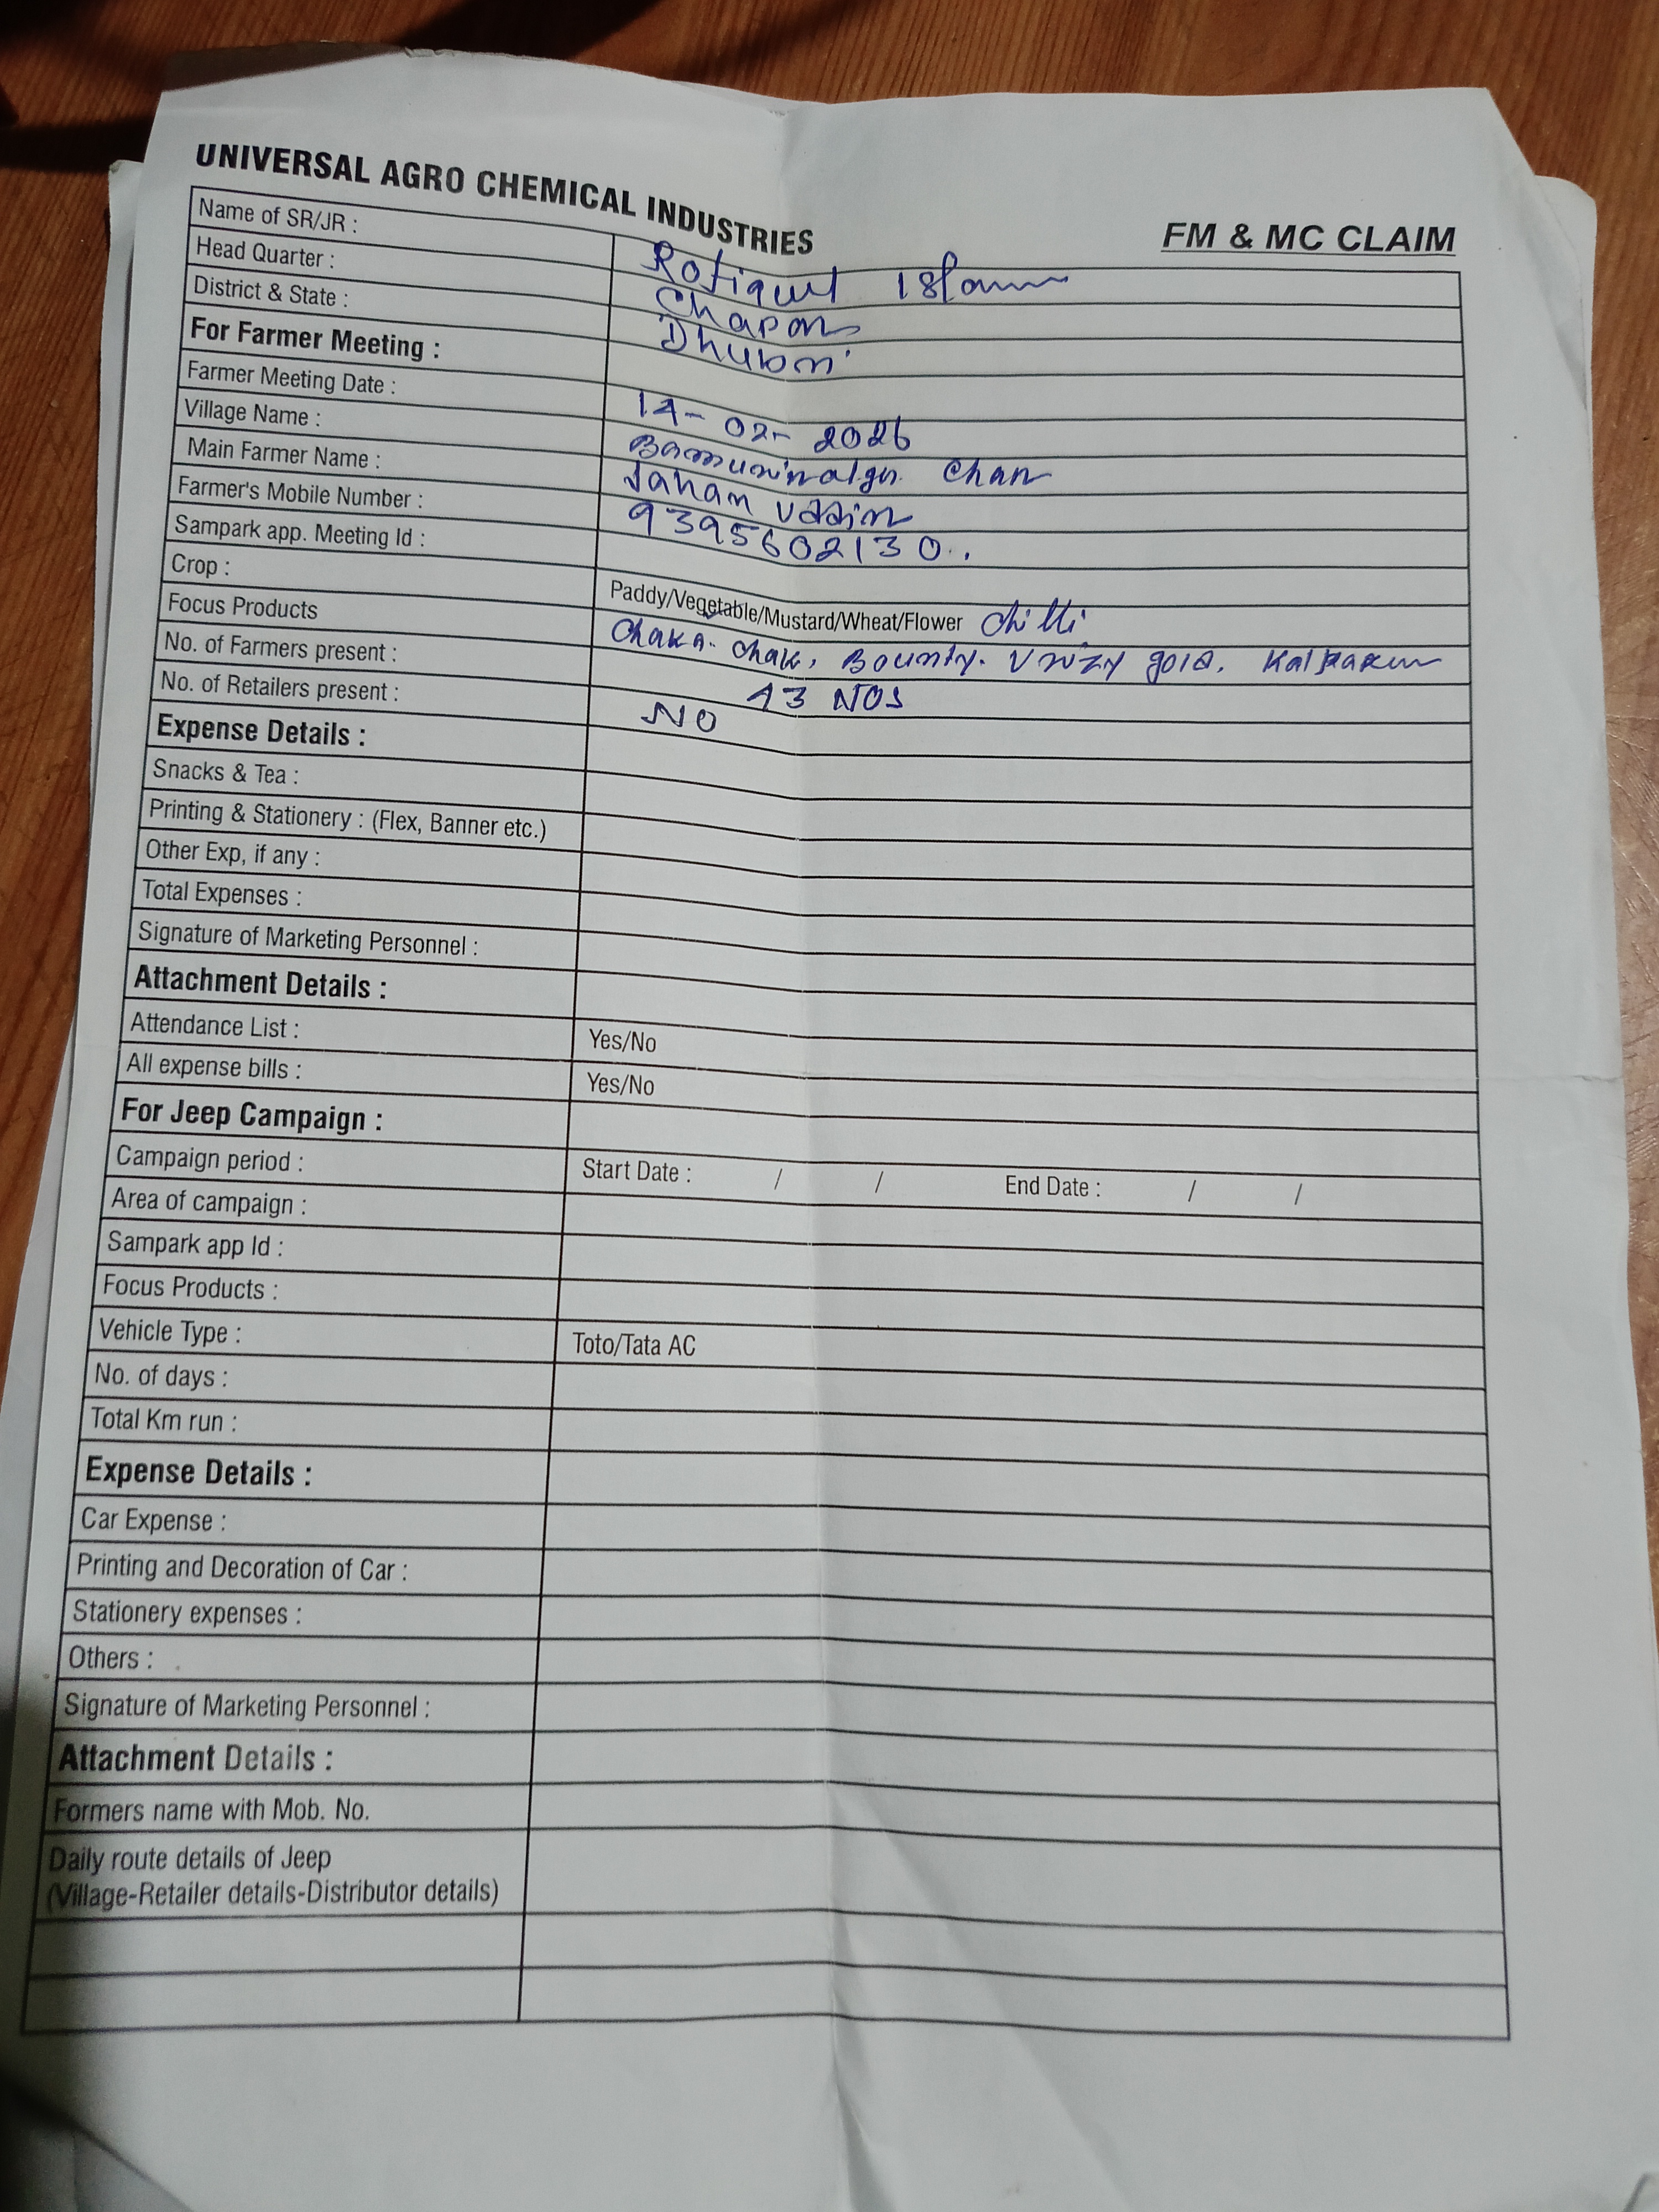 UNIVERSAL AGRO CHEMICAL INDUSTRIES
FM & MC CLAIM
Name of SR/JR : Rofiqul Islam
Head Quarter : Chapor
District & State : Dhubri
For Farmer Meeting :
Farmer Meeting Date : 14-02-2026
Village Name : Char
Main Farmer Name : Jahan Uddin
Farmer's Mobile Number : 9395602130
Sampark app. Meeting Id :
Crop : Paddy/Vegetable/Mustard/Wheat/Flower chilli
Focus Products Chaka chak, Bounty. gold,
No. of Farmers present : 13 NOS
No. of Retailers present : NO
Expense Details :
Snacks & Tea :
Printing & Stationery : (Flex, Banner etc.)
Other Exp, if any :
Total Expenses :
Signature of Marketing Personnel :
Attachment Details :
Attendance List : Yes/No
All expense bills : Yes/No
For Jeep Campaign :
Campaign period : Start Date : / / End Date : / /
Area of campaign :
Sampark app Id :
Focus Products :
Vehicle Type : Toto/Tata AC
No. of days :
Total Km run :
Expense Details :
Car Expense :
Printing and Decoration of Car :
Stationery expenses :
Others :
Signature of Marketing Personnel :
Attachment Details :
Formers name with Mob. No.
Daily route details of Jeep
(Village-Retailer details-Distributor details)